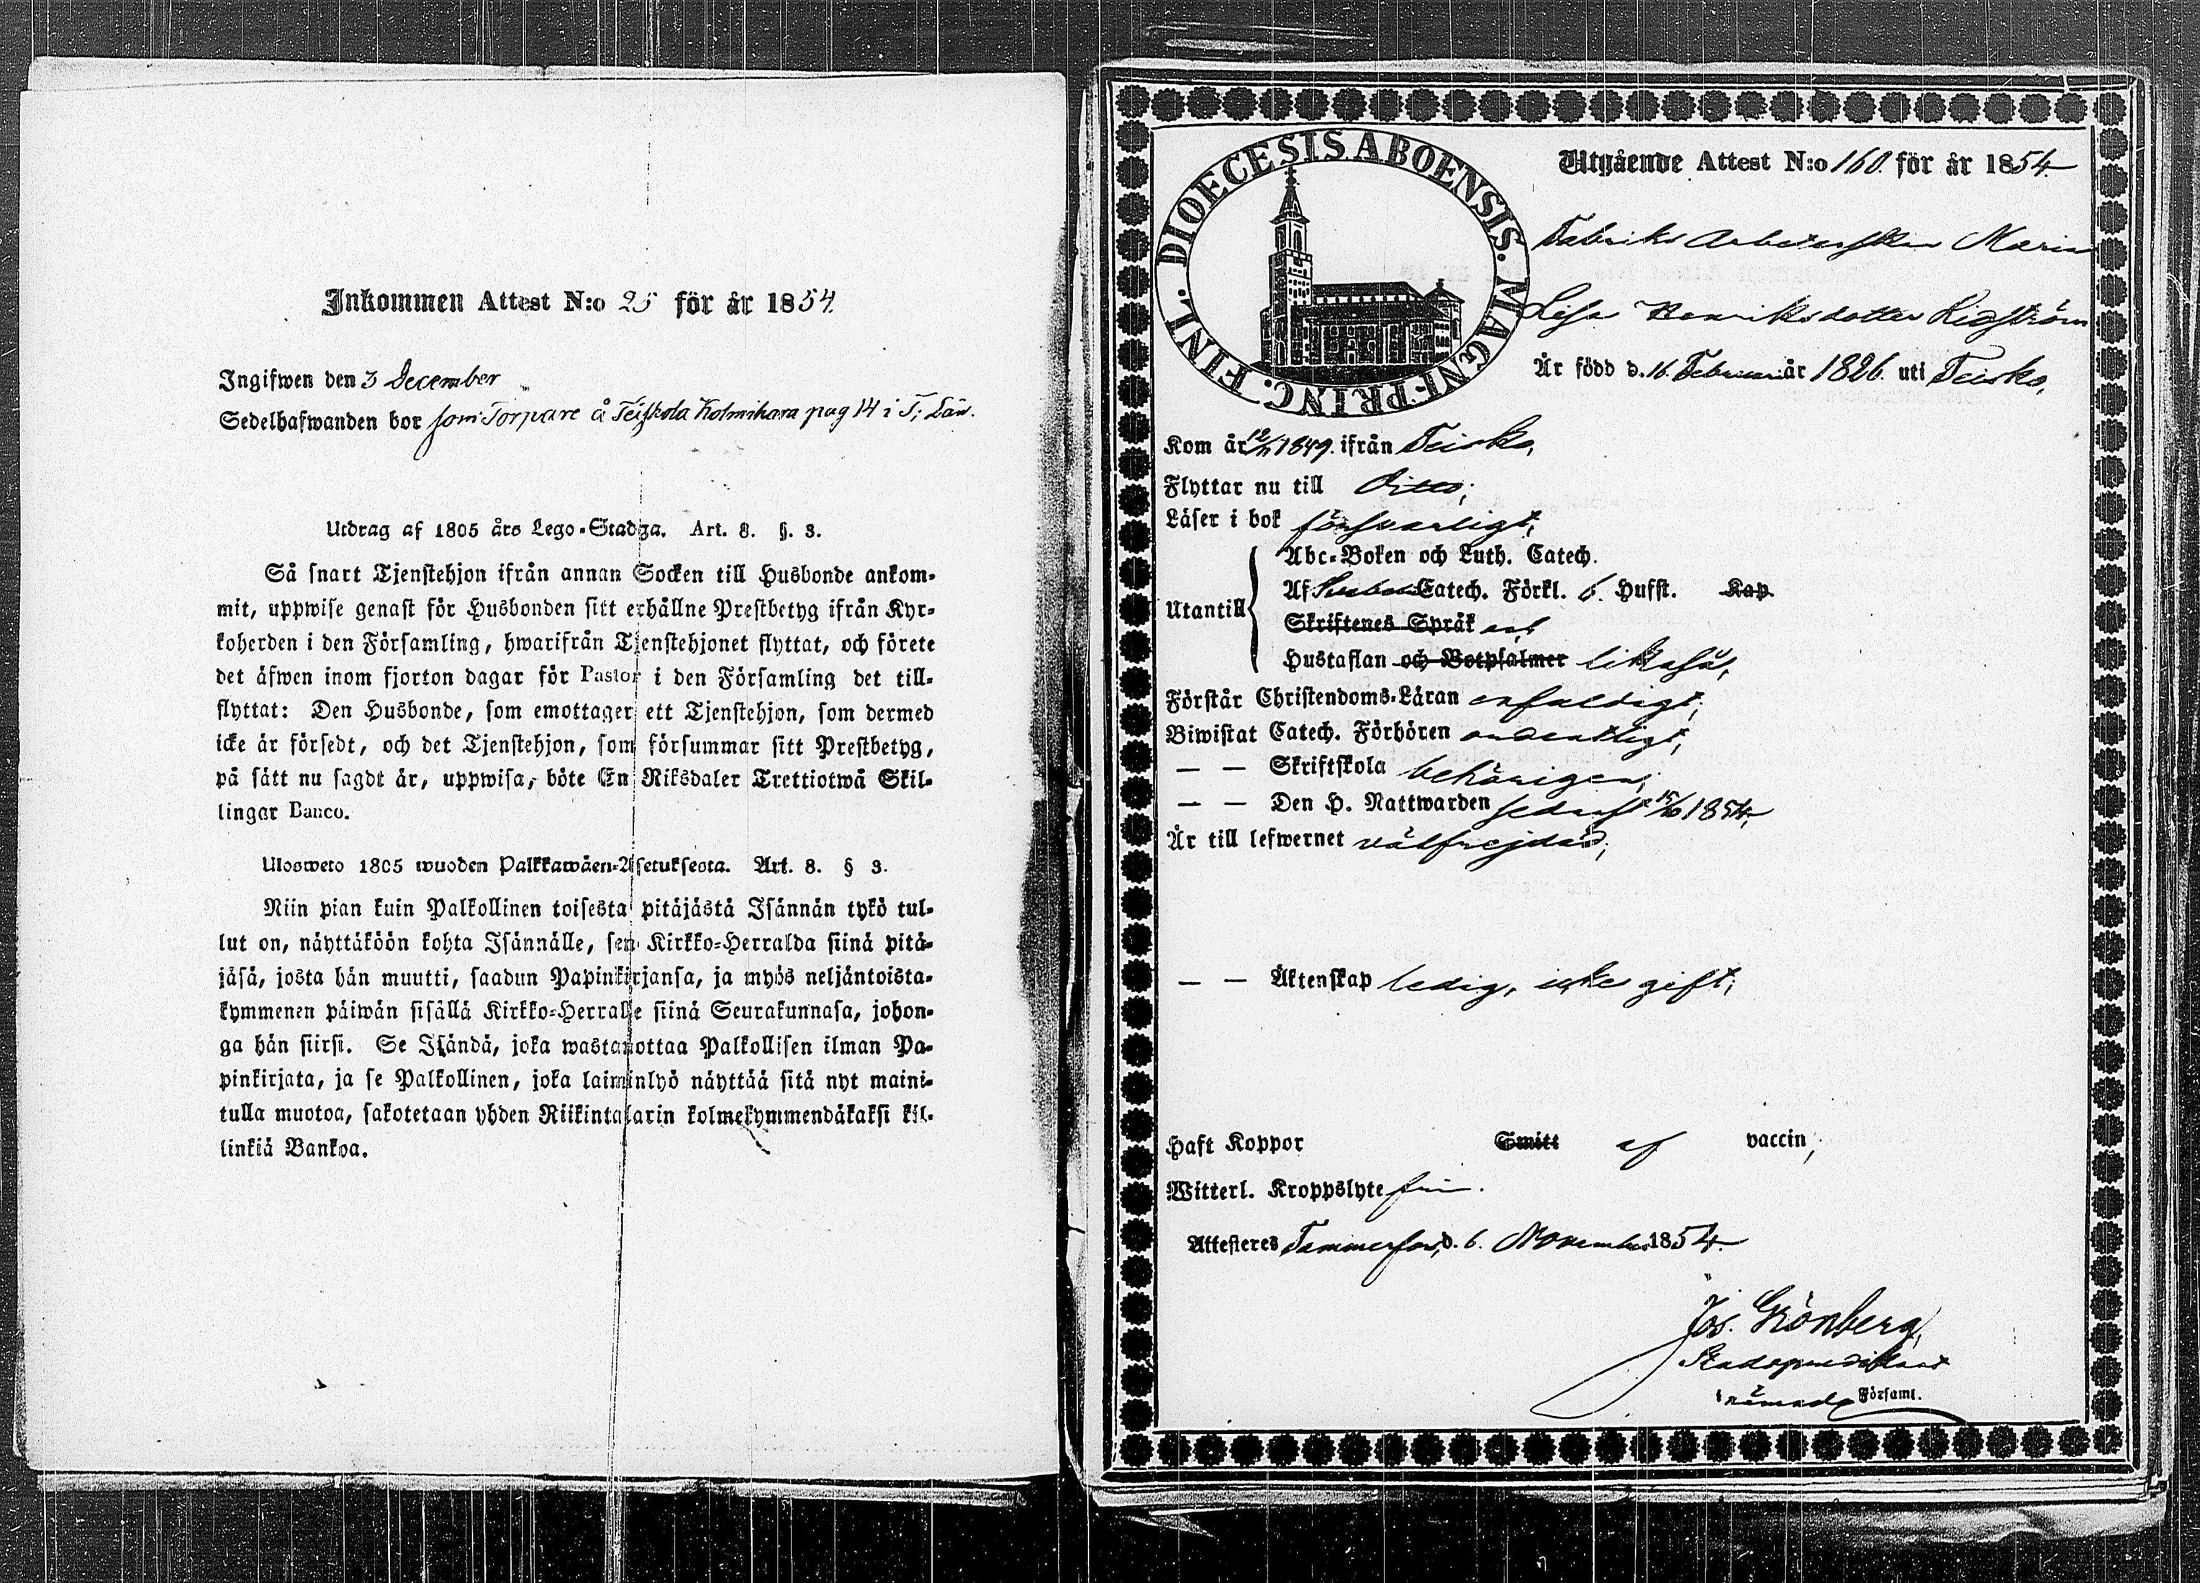 Inkommen Attest N:o 25 för år 1854.
Ingifwen den 3 December
Sedelhafwanden bor som Torpare å Teiskola Kolmihara pag 14 i T; Län.
Utdrag af 1805 års Lego-Stadga. Art. 8. §. 3.
Så snart Tjenstehjon ifrån annan Socken till Husbonde ankom-
mit, uppwise genast för Husbonden sitt erhållne Prestbetyg ifrån Kyr-
koherden i den Församling, hwarifrån Tjenstehjonet flyttat, och förete
det äfwen inom fjorton dagar för Pastor i den Församling det till-
flyttat: Den Husbonde, som emottager ett Tjenstehjon, som dermed
icke är försedt, och det Tjenstehjon, som försummar sitt Prestbetyg,
på sätt nu sagdt är, uppwisa, böte En Riksdaler Trettiotwå Skil-
lingar Banco.
Ulosweto 1805 wuoden Palkkawäen-Asetuksesta. Art. 8. § 3.
Niin pian kuin Palkollinen toisesta pitäjästä Isännän tykö tul-
lut on, näyttäköön kohta Isännälle, sen Kirkko-Herralda siinä pitä-
jäsä, josta hän muutti, saadun Papinkirjansa, ja myös neljäntoista-
kymmenen päiwän sisällä Kirkko-Herralle siinä Seurakunnasa, johon-
ga hän siirsi. Se Isändä, joka wastanottaa Palkollisen ilman Pa-
pinkirjata, ja se Palkollinen, joka laiminlyö näyttää sitä nyt maini-
tulla muotoa, sakotetaan yhden Riikintalarin kolmekymmendäkaksi kil-
linkiä Bankoa.
DIOECESIS ABOENSIS. MAGNI PRINC. FINL.
Utgående Attest N:o 160. för år 1854.
Fabriks Arbeterskan Maria
Lisa Henriksdotter Kigström
Är född d. 16. Februari år 1826. uti Teisko,
Kom år 12/11 1849. ifrån Teisko,
Flyttar nu till Ditto;
Läser i bok försvarligt,
Utantill
Abc-Boken och Luth. Catech.
Af Catech. Förkl. 6. Hufst. Kap.
Skriftenes Språk
Hustaflan och Botpsalmer likaså,
Förstår Christendoms-Läran enfaldigt;
Biwistat Catech. Förhören ordentligt,
— — Skriftskola behörigen;
— — Den H. Nattwarden sednast 15/10 1854,
Är till lefwernet välfrejdad;
— — Äktenskap ledig, icke gift;
Haft Koppor Smitt af vaccin,
Witterl. Kroppslyte fri.
Attesteras Tammerfors, d. 6. November 1854.
Jos. Grönberg,
Stadspredikant
Församl.